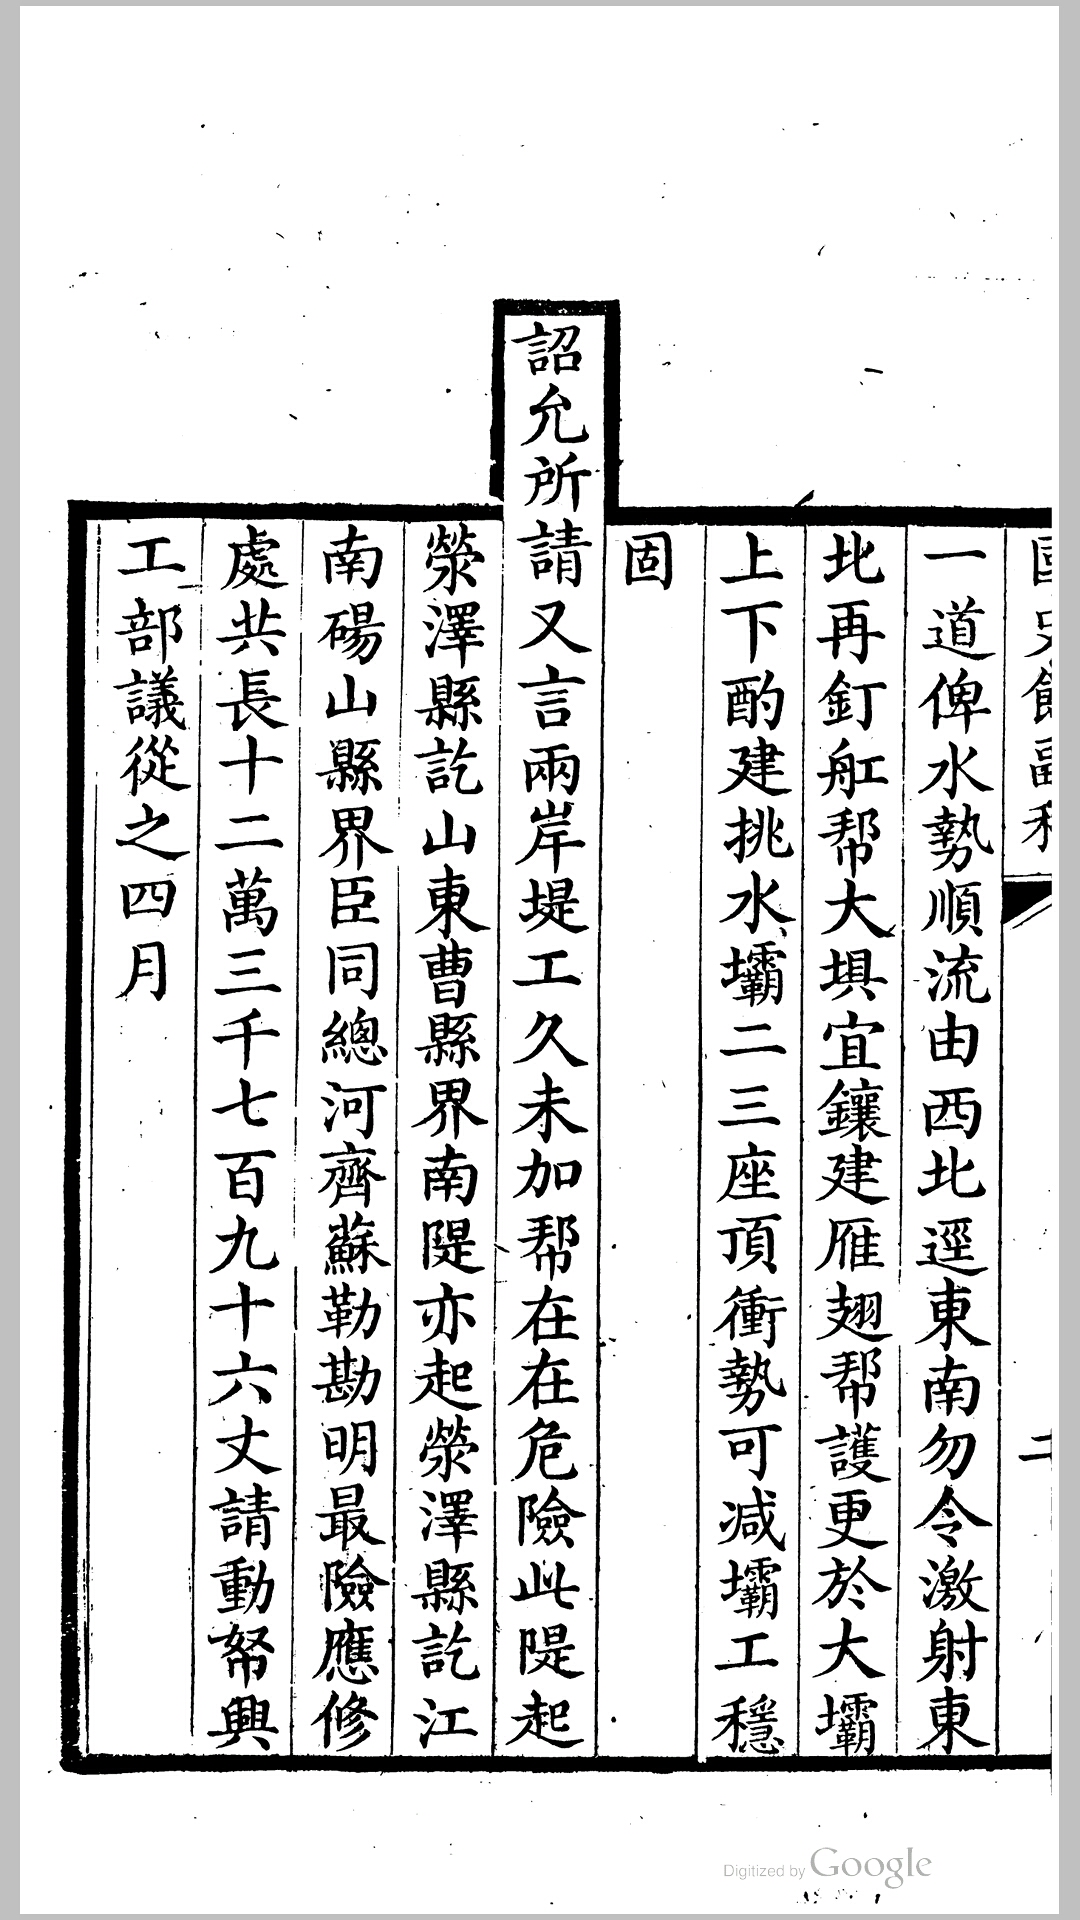 一道俾水勢順流由西北逕東南勿令激射東
北再釘舡帮大埧宜鑲建雁翅帮護更於大壩
上下酌建挑水壩二三座頂衝勢可减壩工穩
固
詔允所請又言兩岸堤工久未加帮在在危險此隄起
滎澤縣訖山東曹縣界南隄亦起滎澤縣訖江
南碭山縣界臣同總河齊蘇勒勘明最險應修
處共長十二萬三千七百九十六丈請動帑興
工部議從之四月
Digitized by Google